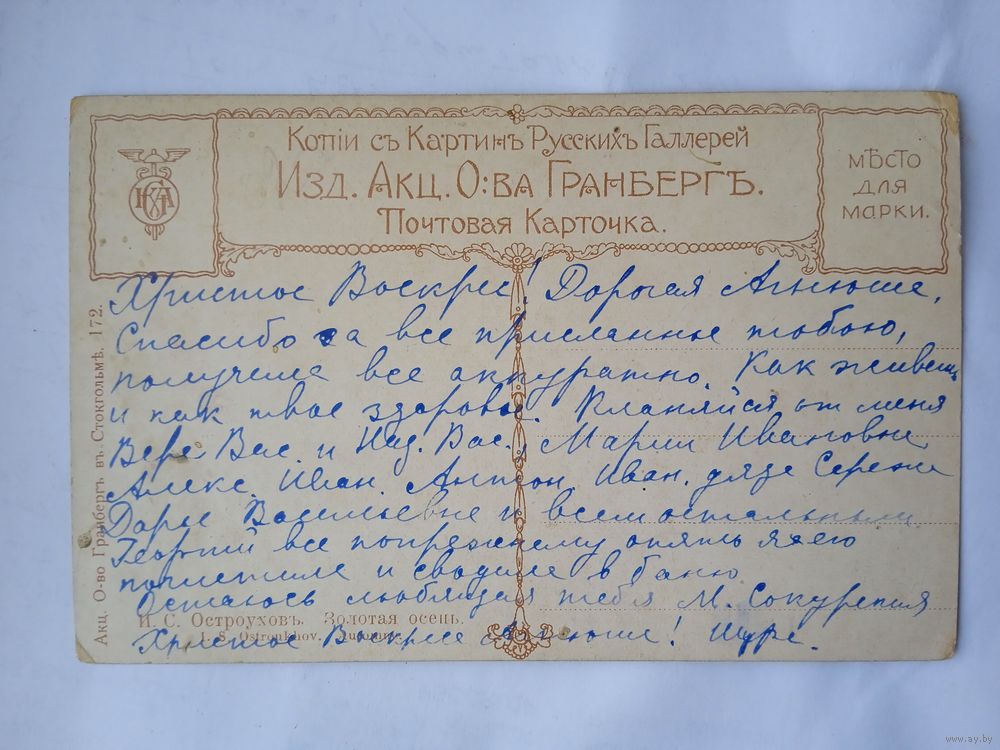 Копіи съ Картинъ Русскихъ Галлерей
Изд. Акц. О:ва Гранбергъ.
Почтовая Карточка.
МѢСТО
ДЛЯ
МАРКИ.
Христос Воскрес! Дорогая Агнюша,
Спасибо за все присланные тобою,
получила все аккуратно. Как живешь
и как твое здоровье. Кланяйся от меня
Вере Вас. и Над. Вас., Марии Ивановне
Алекс. Иван. Антон. Иван. дяде Сереже
Дарье Васильевне и всем остальным.
Георгий все попрежнему опять я его
почистила и сводила в баню
Остаюсь любящая тебя М.
И. С. Остроуховъ. Золотая осень.
I. S. Ostroukhov.
Христос Воскрес! Шура.
Акц. О-во Гранбергъ въ Стокгольмѣ. 172.
www.ay.by